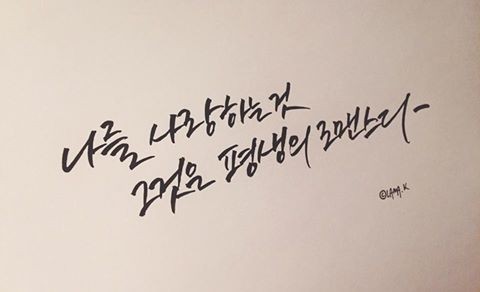 나를 사랑하는 것
그것은 평생의 로맨스다-
©LAMA.K